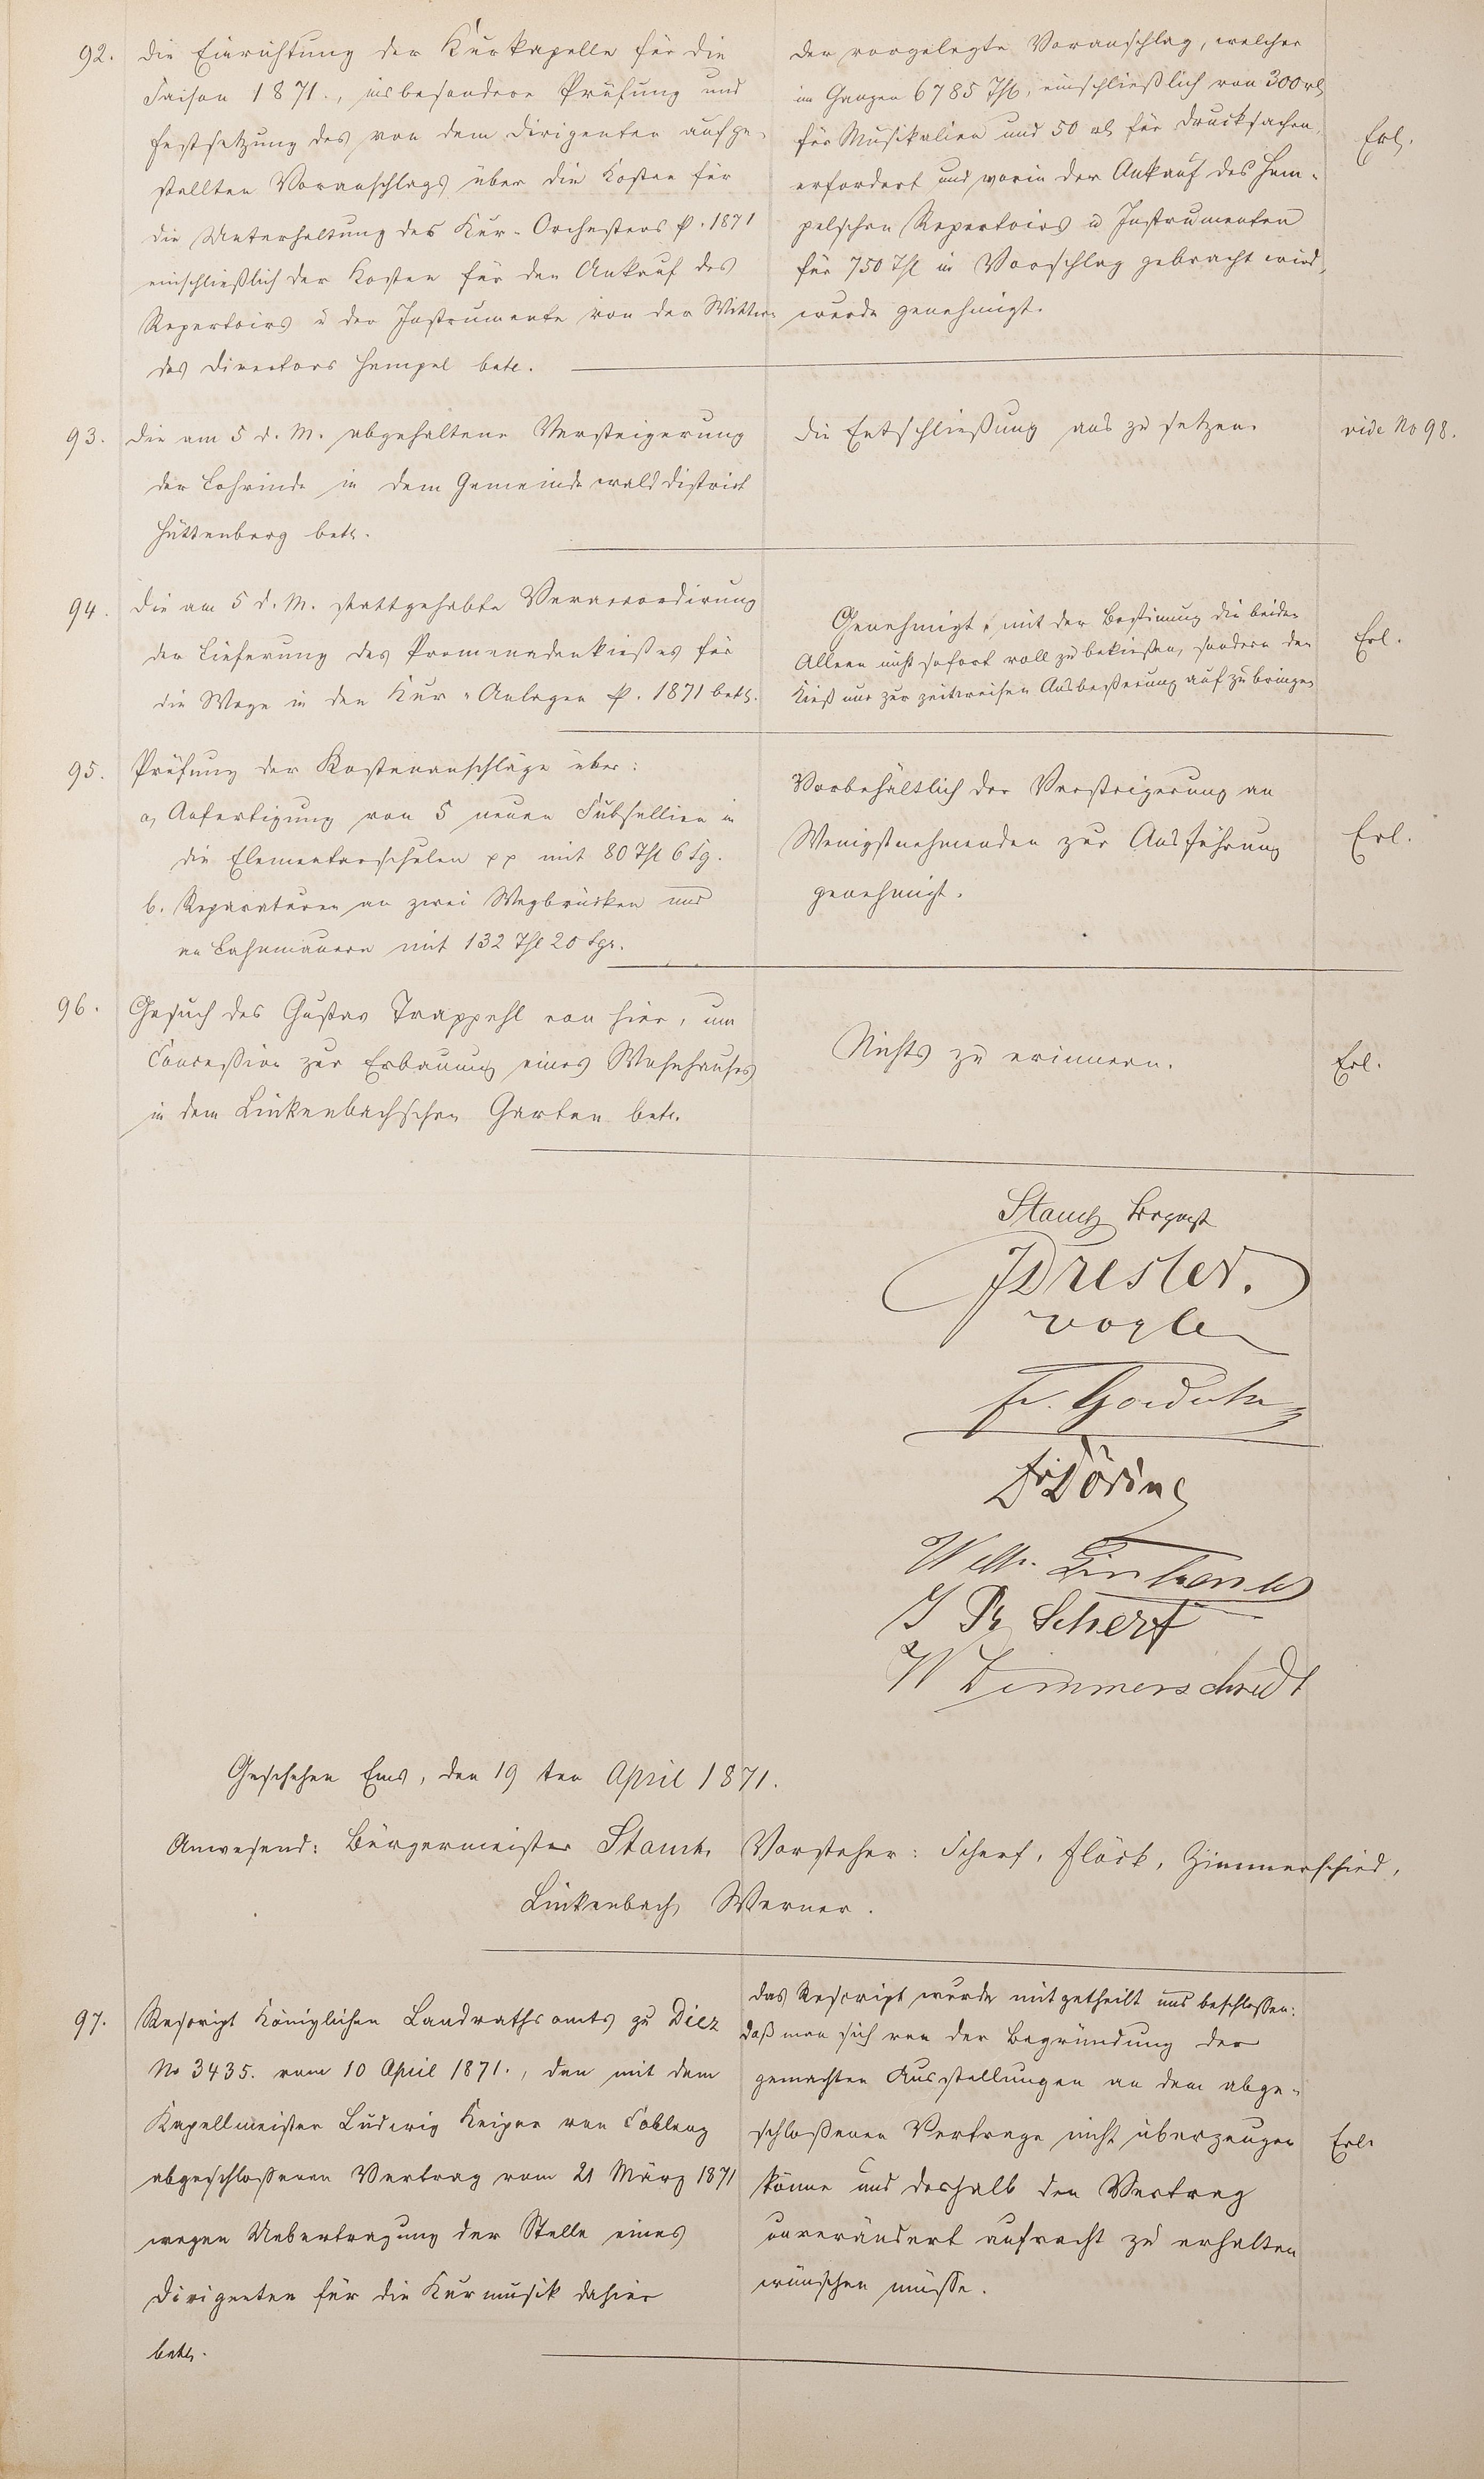 92. die Einrichtung der Kurkapelle für die
Saison 1871., insbesondere Prüfung und
Festsetzung des von dem Dirigenten aufge-
stellten Voranschlags über die Kosten für
die Unterhaltung des Kur-Orchesters p. 1871
einschließlich der Kosten für den Ankauf des
Repertoirs u der Instrumente von der Wittwe
des Directors Hempel betr.
der vorgelegte Voranschlag, welcher
im Ganzen 6785 Thlr, einschließlich von 300 rl
für Musikalien und 50 rl für Drucksachen,
erfordert und worin der Ankauf des Hem-
pelschen Repertoirs u Instrumenten
für 750 Thl in Vorschlag gebracht wird,
wurde genehmigt.
Erl.
93. die am 5 d. M. abgehaltene Versteigerung
der Lohrinde in dem Gemeindewalddistrict
Hüttenberg betr.
die Entschließung aus zu setzen.
vide No 98.
94. die am 5 d. M. stattgehabte Veraccordirung
der Lieferung des Promenadenkießes für
die Wege in den Kur-Anlagen p. 1871 betr.
Genehmigt, mit der Bestimung die beiden
Alleen nicht sofort voll zu bekießen, sondern den
Kieß nur zur zeitweisen Ausbeßerung auf zu bringen
Erl.
95. Prüfung der Kostenanschläge über:
a, Anfertigung von 5 neuen Subsellien in
die Elementarschulen pp mit 80 Thl 6 Sg.
b. Reparaturen an zwei Wegbrücken und
an Lahnmauern mit 132 Thl 20 Sgr.
Vorbehältlich der Versteigerung an
Wenigstnehmenden zur Ausführung
genehmigt.
Erl.
96. Gesuch des Gustav Trappehl von hier, um
Concession zur Erbauung eines Wohnhauses
in dem Linkenbachschen Garten betr.
Nichts zu erinnern.
Erl.
Stauch
JDresler.
Vogler
Fr.
Dr Döring
Wilh. Linkenbach
J Ph Scherf
W Zimmerschied
Geschehen Ems, den 19 ten April 1871.
Anwesend: Bürgermeister Stauch, Vorsteher: Scherf, Flöck, Zimmerschied,
Linkenbach, Werner.
97. Rescript Königlichen Landrathsamts zu Diez
No 3435. vom 10 April 1871., den mit dem
Kapellmeister Ludwig Keiper von Coblenz
abgeschlossenen Vertrag vom 21 März 1871
wegen Uebertragung der Stelle eines
Dirigenten für die Kurmusik dahier
betr.
das Rescript wurde mitgetheilt und beschlossen:
daß man sich von der Begründung der
gemachten Ausstellungen an dem abge-
schloßenen Vertrage nicht überzeugen
könne und deshalb den Vertrag
unverändert aufrecht zu erhalten
wünschen müsse.
Erl.